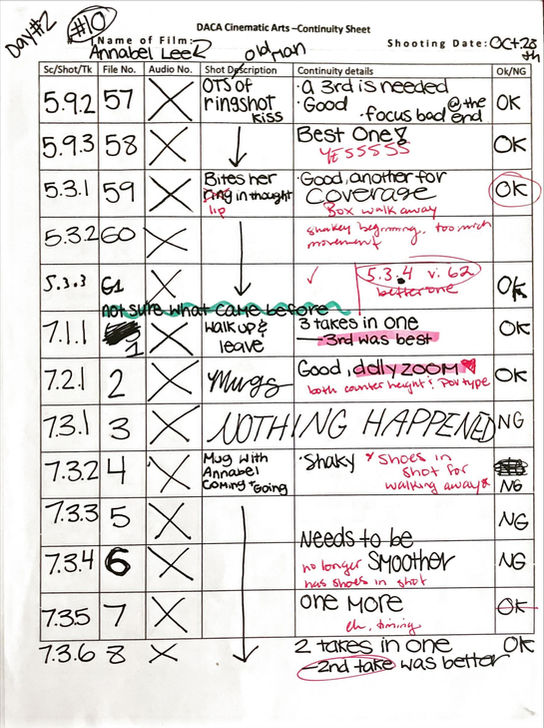 Day #2
#10
DACA Cinematic Arts –Continuity Sheet
Name of Film: Annabel Lee
Shooting Date: Oct 28th
old man
Sc/Shot/Tk File No. Audio No. Shot Description Continuity details Ok/NG
5.9.2 57 X OTS of ringshot kiss
· a 3rd is needed
· Good · focus bad @the end
OK
5.9.3 58 X
Best One!
YESSSSS
OK
5.3.1 59 X Bites her
ring in thought
lip
· Good, another for
coverage
Box walk away
OK
5.3.2 60 X
shakey beginning, too much
movement
5.3.3 61 X
✓ 5.3.4 v. 62
better one
OK
not sure what came before
7.1.1 1 X walk up &
leave
3 takes in one
—3rd was best
OK
7.2.1 2 X Mugs
Good, dolly zoom ♥
both counter height & POV type
OK
7.3.1 3 X NOTHING HAPPENED NG
7.3.2 4 X Mug with
Annabel
Coming + Going
· Shaky * shoes in
shot for
walking away*
NG
7.3.3 5 X NG
7.3.4 6 X
Needs to be
smoother
no longer
has shoes in shot
NG
7.3.5 7 X
one more
eh, timing
OK
7.3.6 8 X
2 takes in one
—2nd take was better
OK